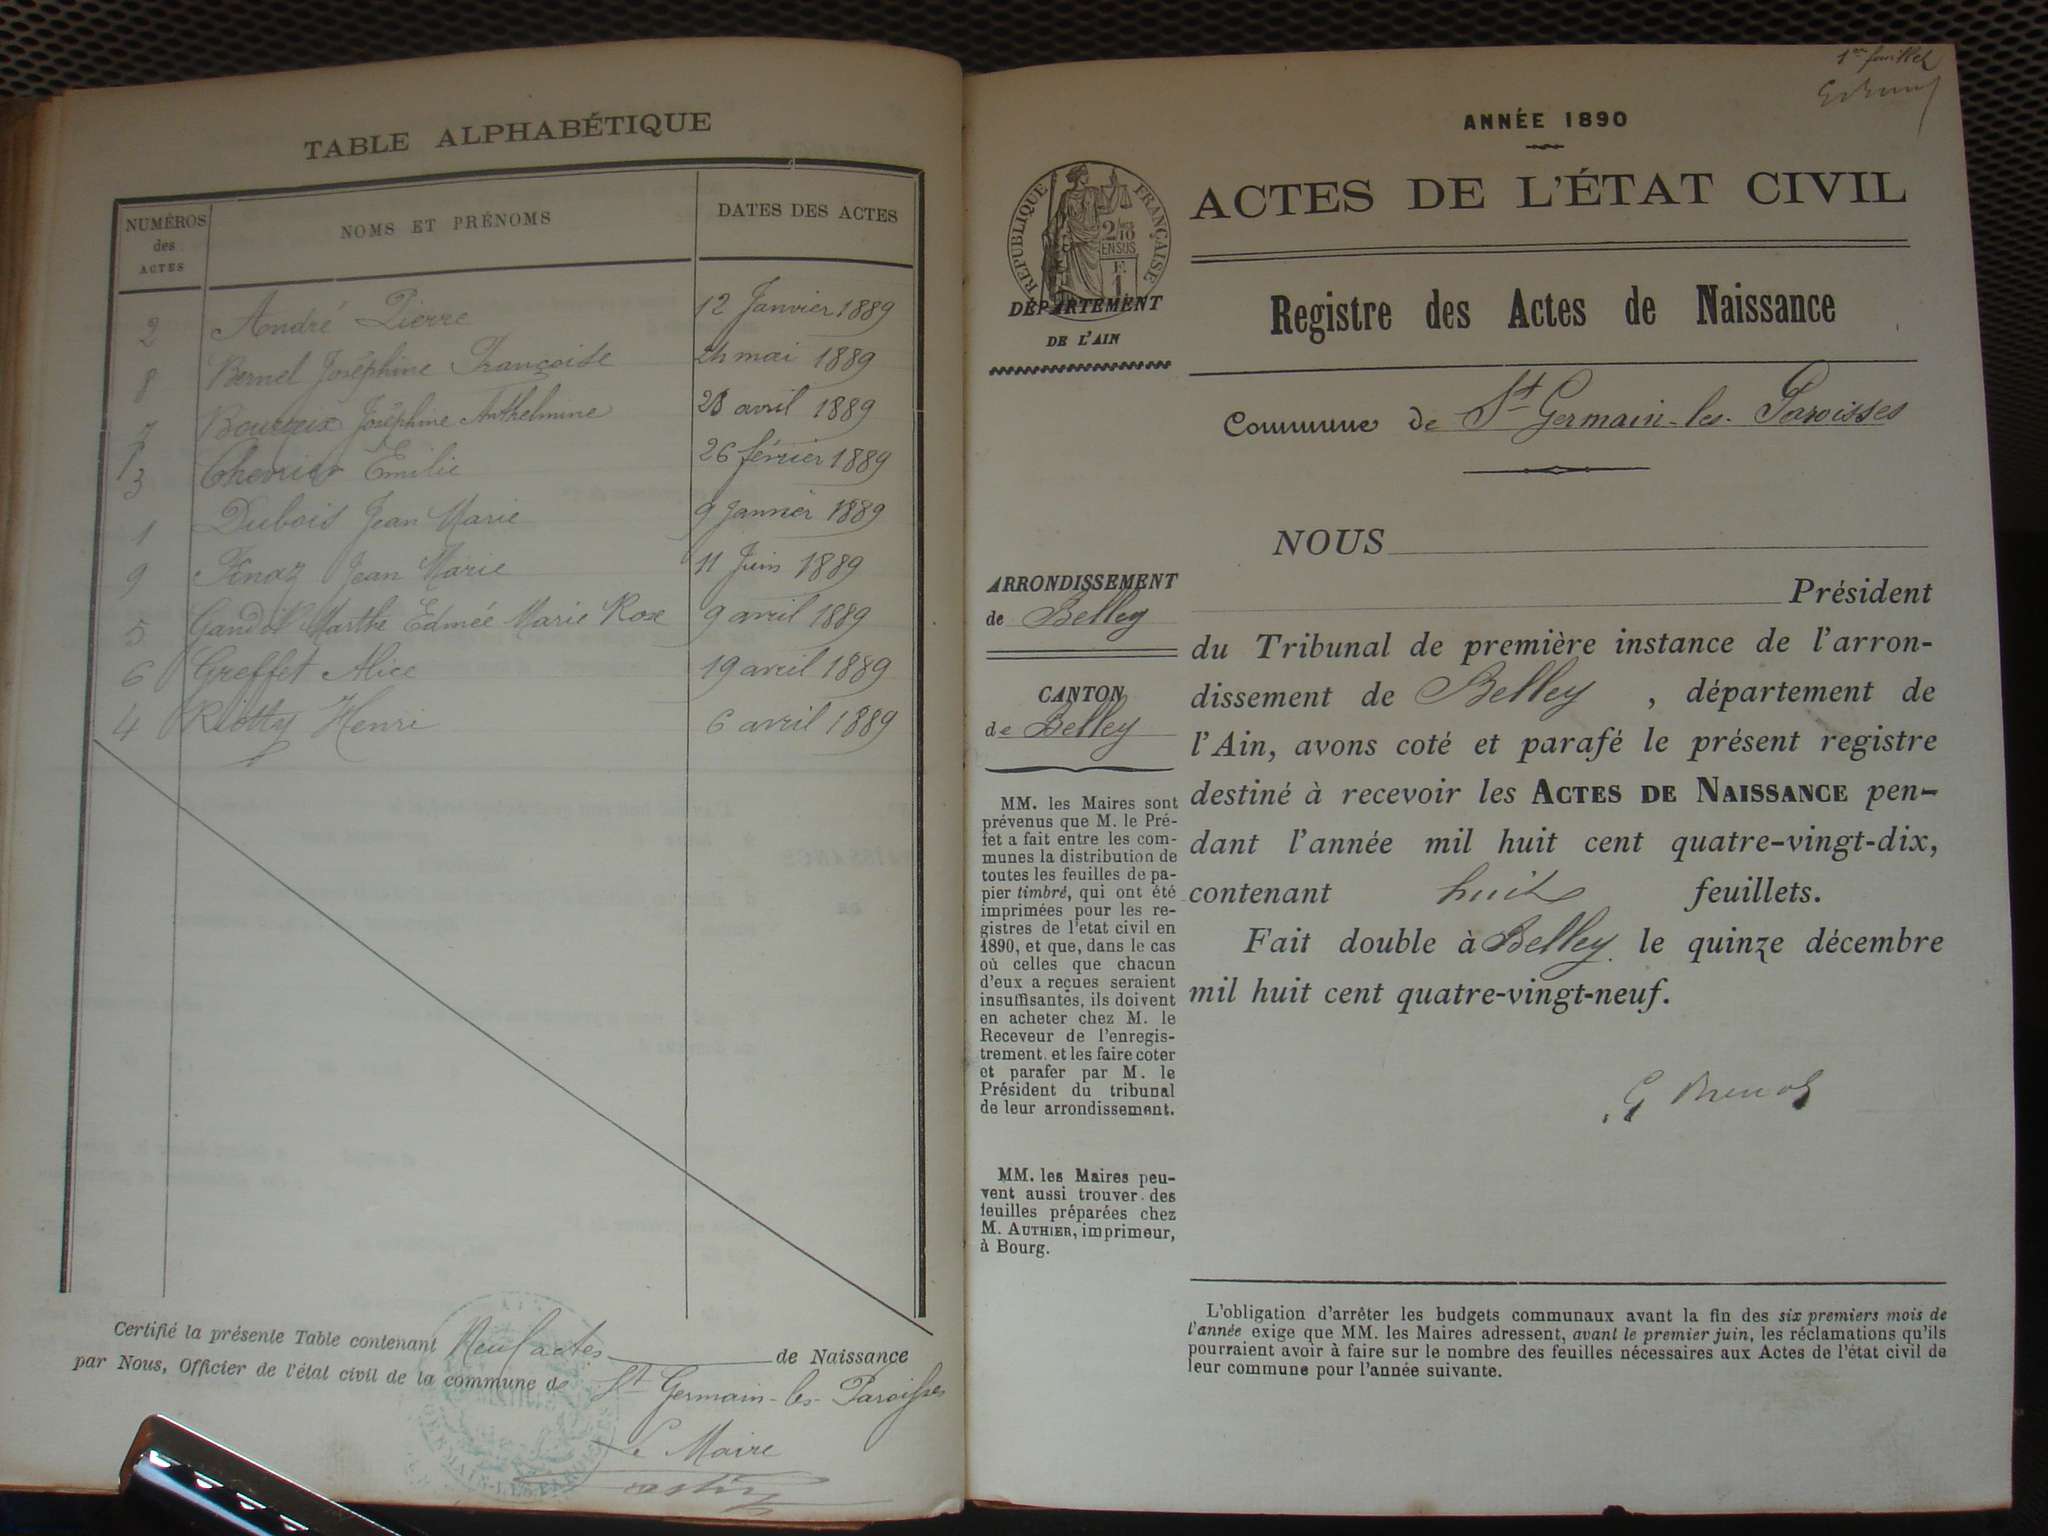 TABLE ALPHABÉTIQUE
NUMÉROS des ACTES
NOMS ET PRÉNOMS
DATES DES ACTES
2 André Pierre 12 Janvier 1889
8 Bernel Joséphine Françoise 24 mai 1889
7 Joséphine Anthelmine 28 avril 1889
3 Chevrier Emilie 26 février 1889
1 Dubois Jean Marie 9 Janvier 1889
9 Jean Marie 11 Juin 1889
5 Marthe Edmée Marie Rose 9 avril 1889
6 Greffet Alice 19 avril 1889
4 Henri 6 avril 1889
Certifié la présente Table contenant Neuf actes de Naissance
par Nous, Officier de l'état civil de la commune de St Germain-les-Paroisses
Le Maire
1er feuillet
ANNÉE 1890
RÉPUBLIQUE FRANÇAISE
2/10
EN SUS
DÉPARTEMENT
DE L'AIN
ACTES DE L'ÉTAT CIVIL
Registre des Actes de Naissance
Commune de St Germain-les-Paroisses
ARRONDISSEMENT
de Belley
CANTON
de Belley
MM. les Maires sont
prévenus que M. le Pré-
fet a fait entre les com-
munes la distribution de
toutes les feuilles de pa-
pier timbré, qui ont été
imprimées pour les re-
gistres de l'etat civil en
1890, et que, dans le cas
où celles que chacun
d'eux a reçues seraient
insuffisantes, ils doivent
en acheter chez M. le
Receveur de l'enregis-
trement, et les faire coter
et parafer par M. le
Président du tribunal
de leur arrondissement.
MM. les Maires peu-
vent aussi trouver des
feuilles préparées chez
M. AUTHIER, imprimeur,
à Bourg.
NOUS
Président
du Tribunal de première instance de l'arron-
dissement de Belley, département de
l'Ain, avons coté et parafé le présent registre
destiné à recevoir les ACTES DE NAISSANCE pen-
dant l'année mil huit cent quatre-vingt-dix,
contenant huit feuillets.
Fait double à Belley. le quinze décembre
mil huit cent quatre-vingt-neuf.
L'obligation d'arrêter les budgets communaux avant la fin des six premiers mois de
l'année exige que MM. les Maires adressent, avant le premier juin, les réclamations qu'ils
pourraient avoir à faire sur le nombre des feuilles nécessaires aux Actes de l'état civil de
leur commune pour l'année suivante.